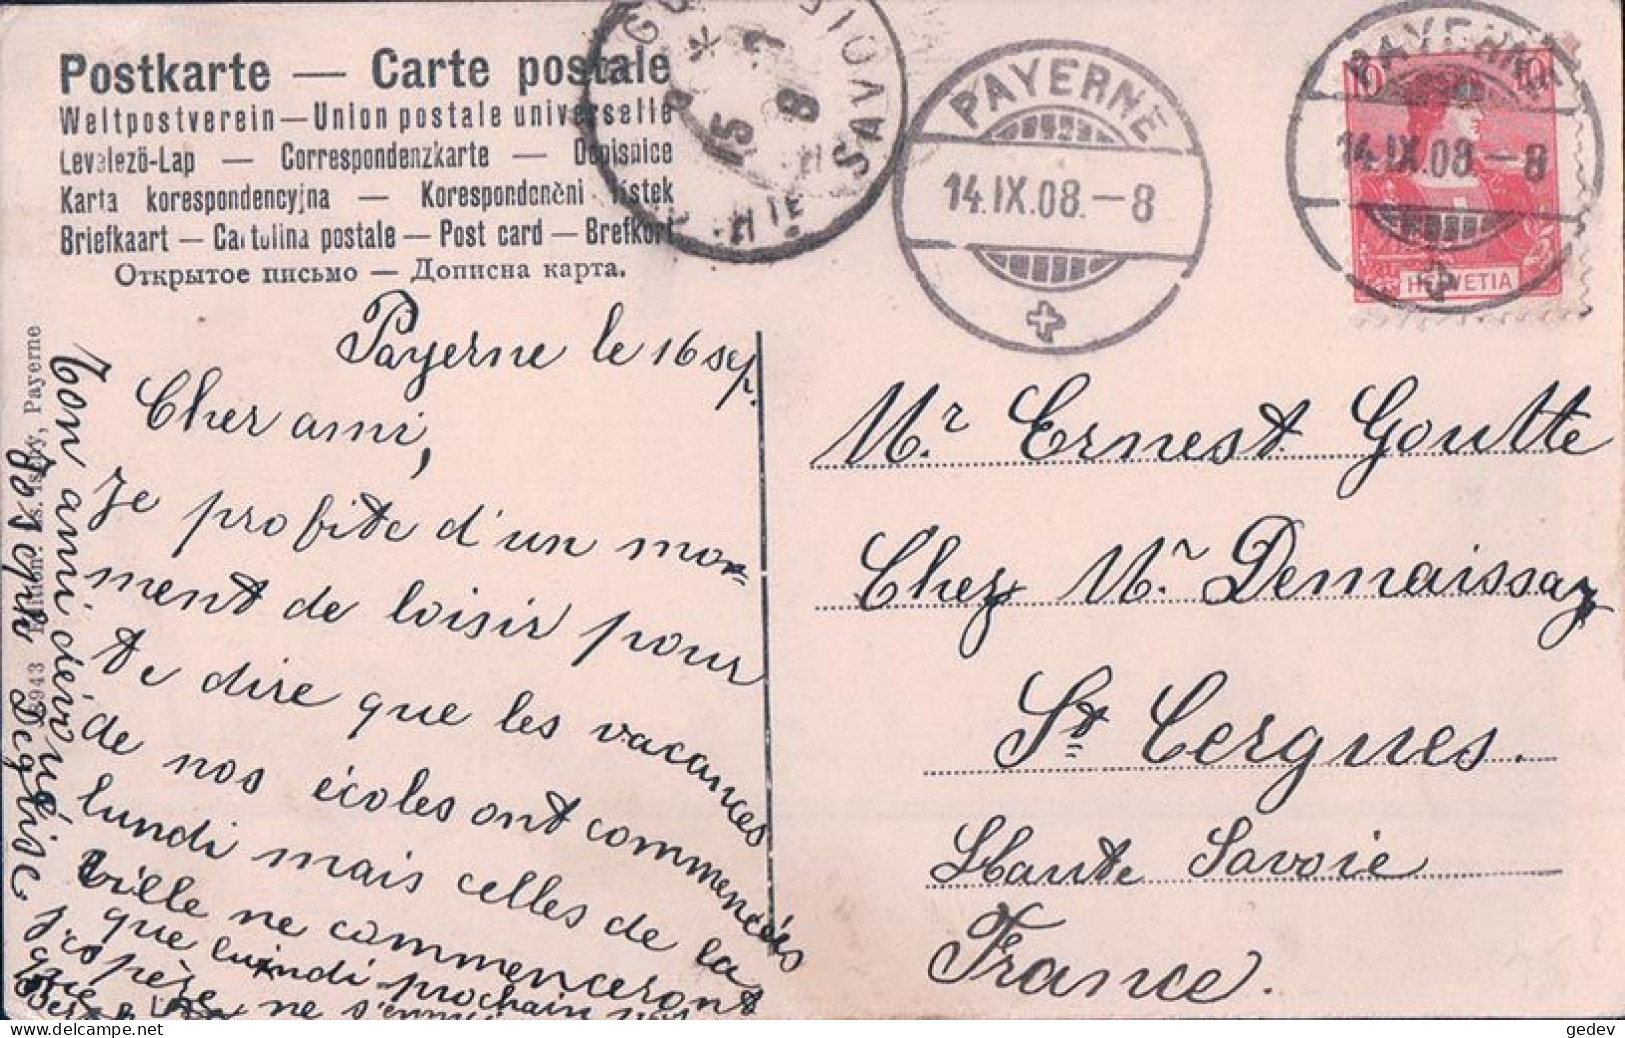 Postkarte — Carte postale
Weltpostverein — Union postale universelle
Levelező-Lap — Correspondenzkarte — Dopisnice
Karta korespondencyjna — Korespondenční lístek
Briefkaart — Cartolina postale — Post card — Brefkort
Открытое письмо — Дописна карта.
PAYERNE
14.IX.08.–8
PAYERNE
14.IX.08.–8
10 10
HELVETIA
SAVOIE
HTE
Payerne le 16 sep.
Cher ami,
Je profite d'un mo-
ment de loisir pour
te dire que les vacances
de nos écoles ont commencées
lundi mais celles de la
ville ne commenceront
que lundi prochain
j'espère que
ne s'ennuie
Ton ami dévoué
Joseph
Edition. Payerne
943
Mr. Ernest Goutte
Chez Mr. Demaissay
St Cergues.
Haute Savoie
France.
gedev